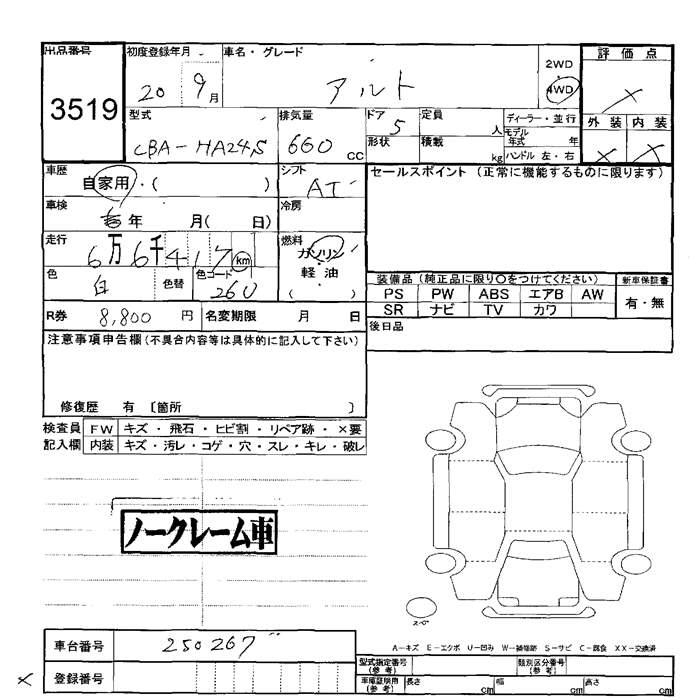 出品番号 初度登録年月 車名・グレード 2WD 評価点
3519 20 9月 アルト 4WD ×
型式 排気量 ドア 定員 ディーラー・並行 外装 内装
CBA-HA24S 660 cc 5 人 モデル年式 年 × ×
形状 積載 kg ハンドル 左・右
車歴 自家用・( ) シフト AT セールスポイント (正常に機能するものに限ります)
車検 年 月( 日) 冷房
走行 6万6千417 km 燃料 ガソリン
軽油
( )
色 白 色替 色コード 260
装備品 (純正品に限り○をつけてください) 新車保証書
PS PW ABS エアB AW 有・無
SR ナビ TV カワ
R券 8,800 円 名変期限 月 日 後日品
注意事項申告欄(不具合内容等は具体的に記入して下さい)
修復歴 有 〔箇所 〕
検査員 FW キズ・飛石・ヒビ割・リペア跡・×要
記入欄 内装 キズ・汚レ・コゲ・穴・スレ・キレ・破レ
ノークレーム車
スペア
A-キズ E-エクボ U-凹み W-補修跡 S-サビ C-腐食 XX-交換済
車台番号 250267
型式指定番号 (参考) 類別区分番号 (参考)
× 登録番号
車庫証明用 (参考) 長さ cm 幅 cm 高さ cm